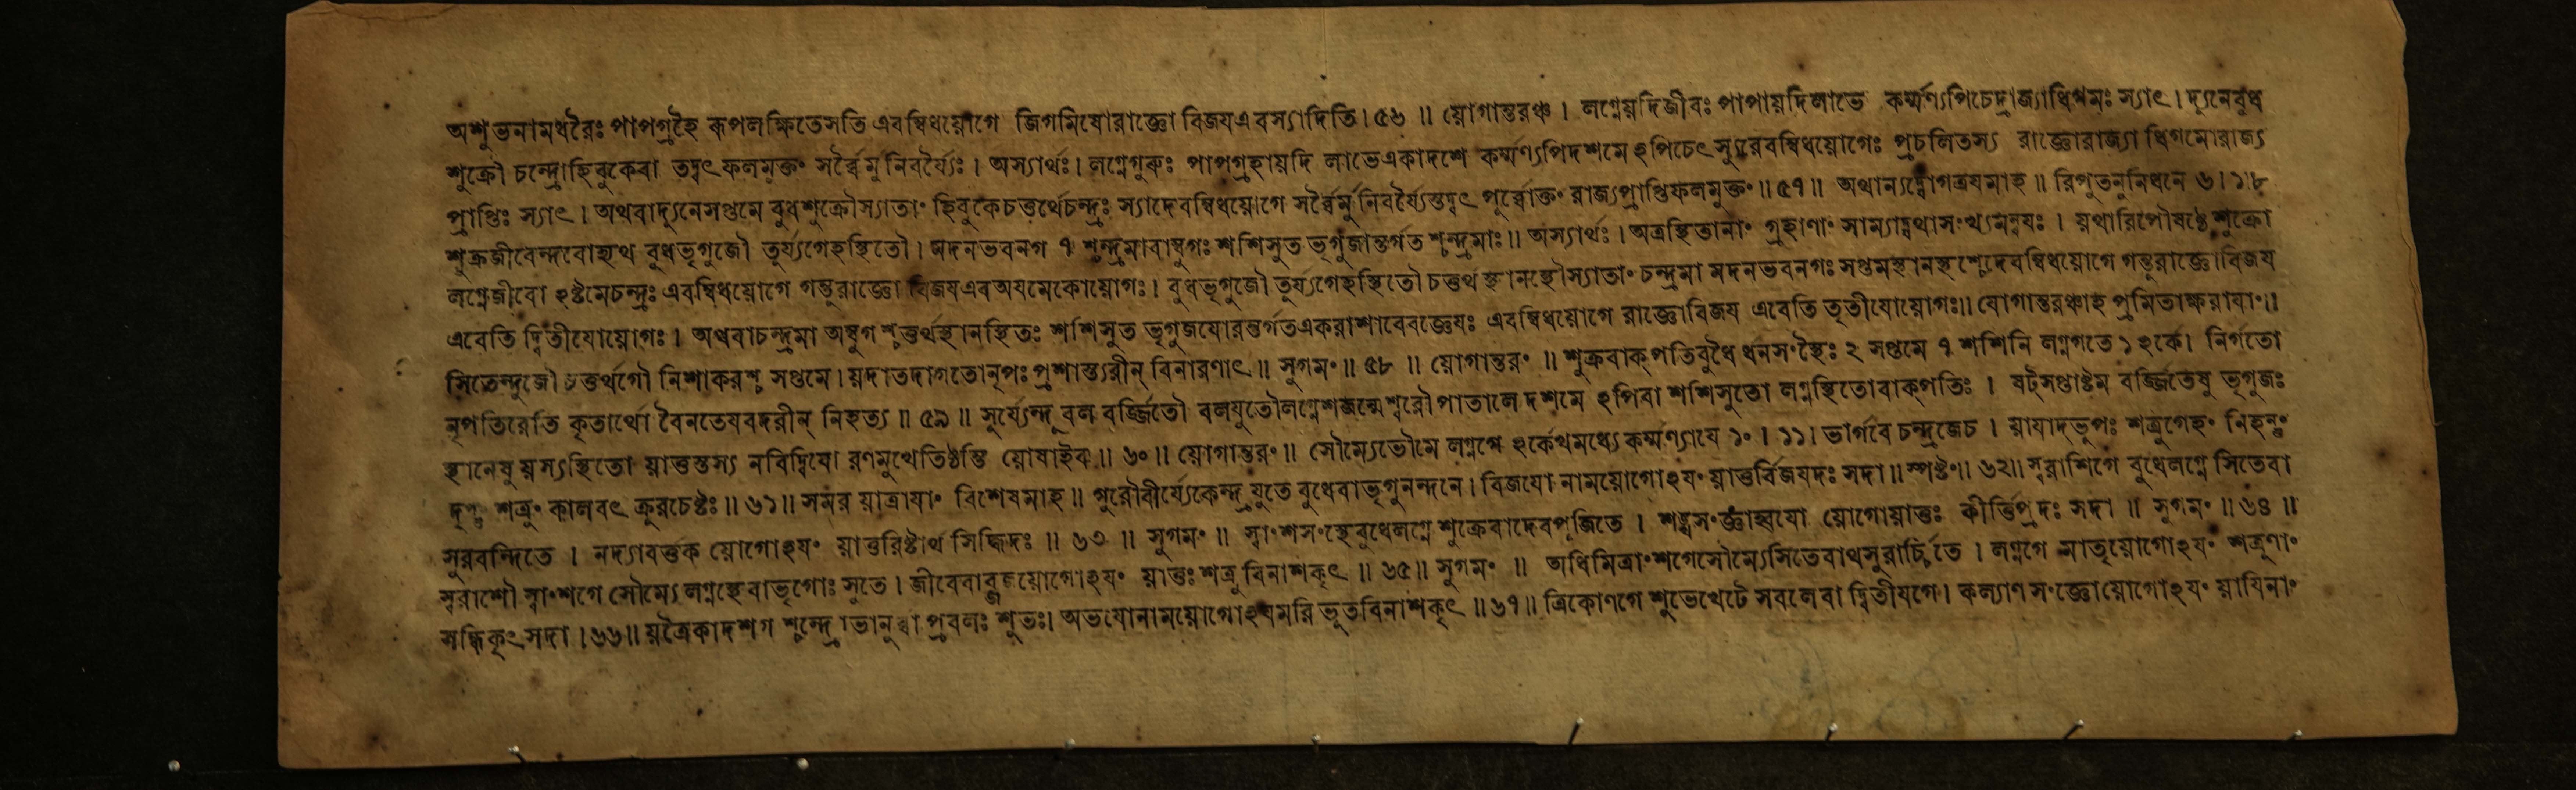 অশুভনামধরৈঃ পাপগ্রহৈ রূপলক্ষিতেসতি এবম্বিধয়োগে জিগমিষোরাজ্ঞো বিজয়এবস্যাদিতি। ৫৬ ॥ য়োগান্তরঞ্চ । লগ্নেয়দিজীবঃ পাপায়দিলাভে কর্ম্মণ্যপিচেদ্রাজ্যাধিগমঃ স্যাৎ । দ্যুনেবুধ
শুক্রৌ চন্দ্রোহিবুকেবা তদ্বৎফলমুক্তং সর্ব্বৈর্মুনিবর্য্যৈঃ । অস্যার্থঃ । লগ্নেগুরুঃ পাপগ্রহায়দি লাভেএকাদশে কর্ম্মণ্যপিদশমে ঽপিচেৎসুরেবম্বিধয়োগেঃ প্রচলিতস্য রাজ্ঞোরাজ্যা ধিগমোরাজ্য
প্রাপ্তিঃ স্যাৎ । অথবাদ্যুনেসপ্তমে বুধশুক্রৌস্যাতাং হিবুকেচতুর্থেচন্দ্রঃ স্যাদেবম্বিধয়োগে সর্ব্বৈর্মুনিবর্য্যৈস্তদ্বৎ পূর্ব্বোক্তং রাজ্যপ্রাপ্তিফলমুক্তং ॥ ৫৭ ॥ অথান্যদ্যোগত্রয়মাহ ॥ রিপুতনুনিধনে ৬।১।৮
শুক্রজীবেন্দবোহ্যথ বুধভৃগুজৌ তুর্য্যগেহস্থিতৌ । মদনভবনগ ৭ শ্চন্দ্রমাবাম্বুগঃ শশিসুত ভৃগুজান্তর্গত শ্চন্দ্রমাঃ ॥ অস্যার্থঃ । অত্রস্থিতানাং গ্রহাণাং সাম্যাদ্যথাসংখ্যমন্বয়ঃ । য়থারিপৌষষ্ঠে শুক্রো
লগ্নেজীবো ঽষ্টমেচন্দ্রঃ এবম্বিধয়োগে গন্তুরাজ্ঞো বিজয়এবঅয়মেকোয়োগঃ । বুধভৃগুজৌ তুর্য্যগেহস্থিতৌ চতুর্থ স্থানস্থৌস্যাতাং চন্দ্রমা মদনভবনগঃ সপ্তমস্থানস্থশ্চেদেবম্বিধয়োগে গন্তুরাজ্ঞোবিজয়
এবেতি দ্বিতীয়োয়োগঃ । অথবাচন্দ্রমা অম্বুগ শ্চতুর্থস্থানস্থিতঃ শশিসুত ভৃগুজয়োরন্তর্গতএকরাশাবেবজ্ঞেয়ঃ এবম্বিধয়োগে রাজ্ঞোবিজয় এবেতি তৃতীয়োয়োগঃ ॥ য়োগান্তরঞ্চাহ প্রমিতাক্ষরায়াং ॥
সিতেন্দুজৌ চতুর্থগৌ নিশাকরশ্চ সপ্তমে । য়দাতদাগতোনৃপঃ প্রশাস্ত্যরীন্ বিনারণাৎ ॥ সুগমং ॥ ৫৮ ॥ য়োগান্তরং ॥ শুক্রবাক্পতিবুধৈ ধনসংস্থৈঃ ২ সপ্তমে ৭ শশিনি লগ্নগতে ১ ঽর্কে। নির্গতো
নৃপতিরেতি কৃতার্থো বৈনতেয়বদরীন্ নিহত্য ॥ ৫৯ ॥ সূর্য্যেন্দূ বল বর্জ্জিতৌ বলযুতৌলগ্নেশজন্মেশ্বরৌপাতালে দশমে ঽপিবা শশিসুতো লগ্নস্থিতোবাক্পতিঃ । ষট্সপ্তাষ্টম বর্জ্জিতেষু ভৃগুজঃ
স্থানেষু য়স্যস্থিতো য়াত্তস্তস্য নবিদ্বিষো রণমুখেতিষ্ঠন্তি য়োষাইব ॥ ৬০ ॥ য়োগান্তরং ॥ সৌম্যেভৌমে লগ্নগে ঽর্কেথমধ্যে কর্ম্মণ্যায়ে ১০ । ১১ । ভার্গবে চন্দ্রজেচ । য়ায়াদ্ভূপঃ শত্রুগেহং নিহন্তুং
দৃপ্তং শত্রুং কালবৎ ক্রূরচেষ্টঃ ॥ ৬১ ॥ সমর য়াত্রায়াং বিশেষমাহ ॥ গুরৌবীর্য্যেকেন্দ্রযুতে বুধেবাভৃগুনন্দনে । বিজয়ো নাময়োগোঽয়ং য়াতুর্বিজয়দঃ সদা ॥ স্পষ্টং ॥ ৬২ ॥ স্বরাশিগে বুধেলগ্নে সিতেবা
সুরবন্দিতে । নদ্যাবর্ত্তক য়োগোঽয়ং য়াতুরিষ্টার্থ সিদ্ধিদঃ ॥ ৬৩ ॥ সুগমং ॥ স্বাংশসংস্থেবুধেলগ্নে শুক্রেবাদেবপূজিতে । শঙ্খসংজ্ঞাহ্বয়ো য়োগোয়াতুঃ কীর্ত্তিপ্রদঃ সদা ॥ সুগমং ॥ ৬৪ ॥
স্বরাশৌ স্বাংশগে সৌম্যে লগ্নস্থেবাভৃগোঃ সুতে । জীবেবা য়োগোঽয়ং য়াতুঃ শত্রুবিনাশকৃৎ ॥ ৬৫ ॥ সুগমং ॥ অধিমিত্রাংশগেসৌম্যেসিতেবাথসুরার্চ্চিতে । লগ্নগে মাতৃয়োগোঽয়ং শত্রুণাং
সন্ধিকৃৎসদা । ৬৬ ॥ য়ত্রৈকাদশগ শ্চন্দ্রো ভানুর্বা প্রবলঃ শুভঃ। অভয়োনাময়োগোঽয়মরি ভূতবিনাশকৃৎ ॥ ৬৭ ॥ ত্রিকোণগে শুভেখেটে সবলেবা দ্বিতীয়গে । কল্যাণ সংজ্ঞোয়োগোঽয়ং য়ায়িনাং